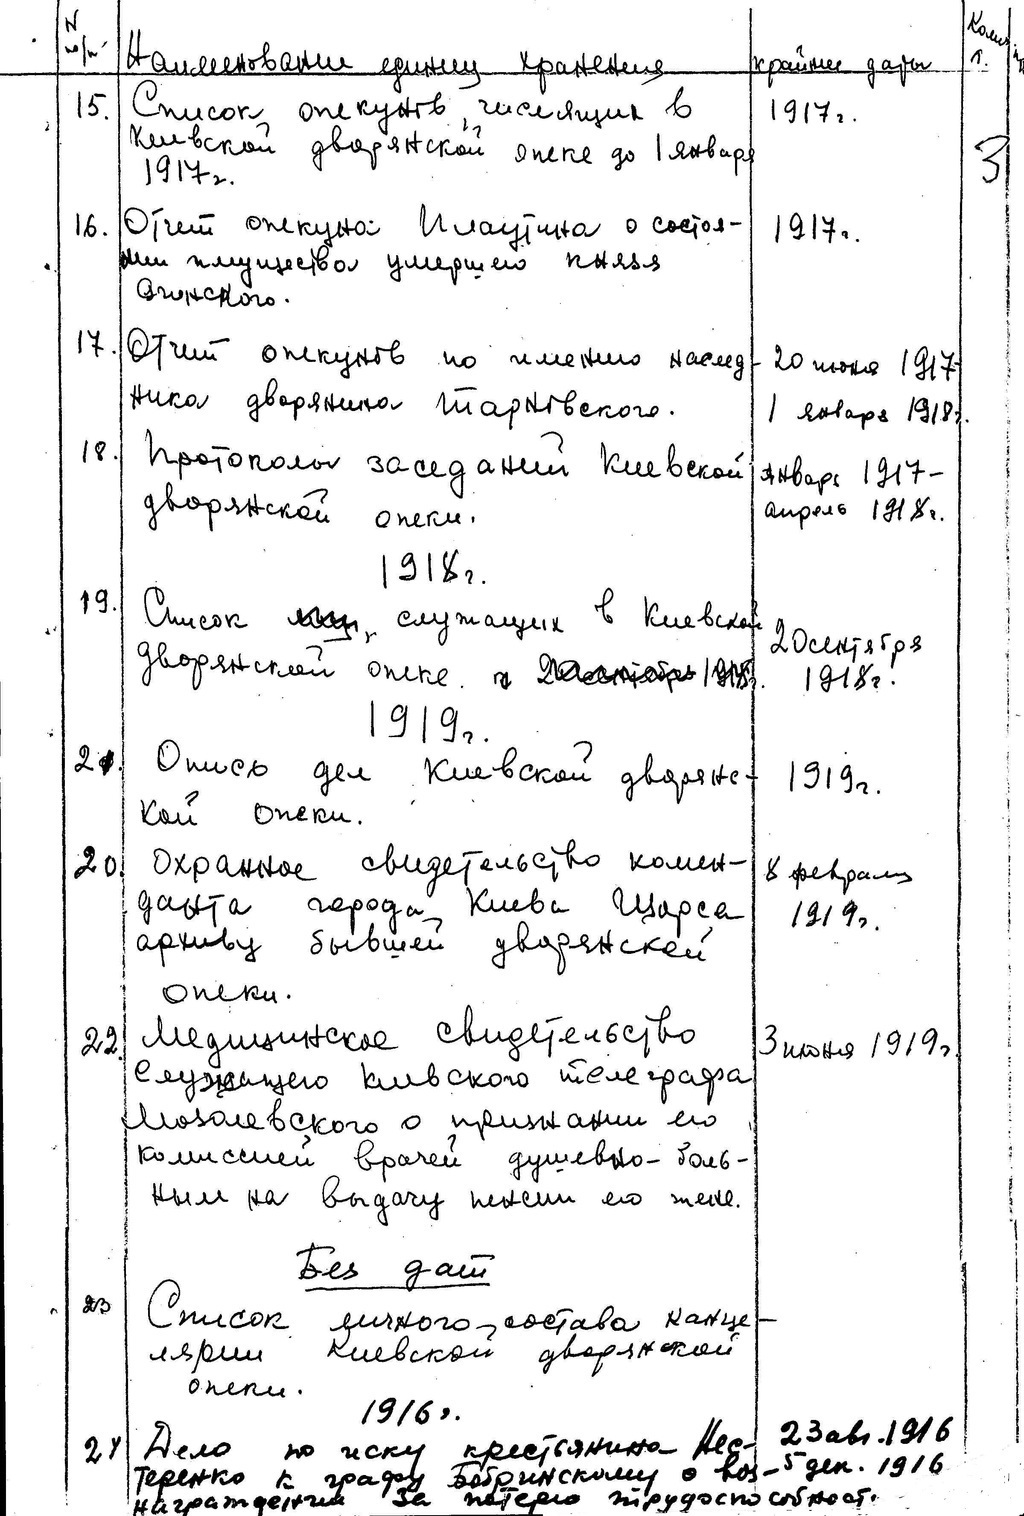 N п/п Наименование единиц хранения крайние даты
15. Список опекунов, числящих в 1917г.
Киевской дворянской опеке до 1 января
1917г.
3
16. Отчет опекуна Плаутина о состоя- 1917г.
нии имущества умершего князя
Огинского.
17. Отчет опекунов по имению наслед- 20 июня 1917-
ника дворянина Тарновского. 1 января 1918г.
18. Протоколы заседаний Киевской январь 1917-
дворянской опеки. апрель 1918г.
1918г.
19. Список служащих в Киевской 20 сентября
дворянской опеке 1918г.
1919г.
21. Опись дел Киевской дворянс- 1919г.
кой опеки.
20. Охранное свидетельство комен- 8 февраля
данта города Киева Щорса 1919г.
архиву бывшей дворянской
опеки.
22. Медицинское свидетельство 3 июня 1919г.
служащего Киевского телеграфа
Мозолевского о признании его
комиссией врачей душевно-боль-
ным на выдачу пенсии его жене.
Без дат
23 Список личного состава канце-
лярии Киевской дворянской
опеки.
1916г.
24 Дело по иску крестьянина Нес- 23 авг. 1916
теренко к графу Бобринскому о воз- 5 дек. 1916
награждении за потерю трудоспособност.